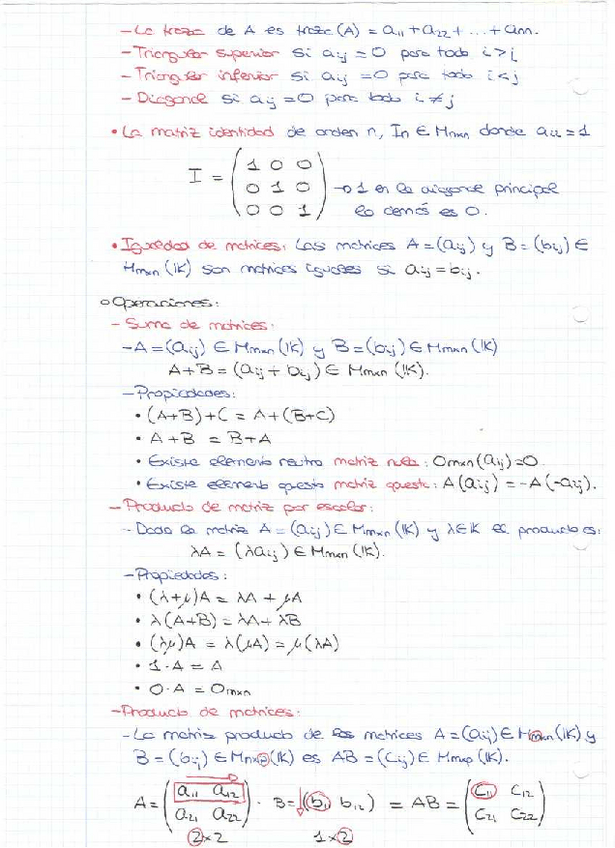 - La traza de A es traza(A) = a₁₁ + a₂₂ + ... + ann.
- Triangular superior si aij = 0 para todo i > j
- Triangular inferior si aij = 0 para todo i < j
- Diagonal si aij = 0 para todo i ≠ j
• La matriz identidad de orden n, In ∈ Mnxn donde aii = 1
I = (1 0 0
0 1 0 → 1 en la diagonal principal
0 0 1) lo demás es 0.
• Igualdad de matrices: Las matrices A = (aij) y B = (bij) ∈
Mmxn (IK) son matrices iguales si aij = bij.
o Operaciones:
- Suma de matrices:
- A = (aij) ∈ Mmxn (IK) y B = (bij) ∈ Mmxn (IK)
A + B = (aij + bij) ∈ Mmxn (IK).
- Propiedades:
• (A+B)+C = A+(B+C)
• A+B = B+A
• Existe elemento neutro matriz nula: Omxn (aij) = 0.
• Existe elemento opuesto matriz opuesta: A(aij) = -A(-aij).
- Producto de matriz por escalar:
- Dada la matriz A = (aij) ∈ Mmxn (IK) y λ ∈ IK el producto es:
λA = (λaij) ∈ Mmxn (IK).
- Propiedades:
• (λ+μ)A = λA + μA
• λ(A+B) = λA + λB
• (λμ)A = λ(μA) = μ(λA)
• 1·A = A
• 0·A = Omxn
- Producto de matrices:
- La matriz producto de las matrices A = (aij) ∈ Mmxn (IK) y
B = (bij) ∈ Mnxp (IK) es AB = (cij) ∈ Mmxp (IK).
A = (a₁₁ a₁₂ · B = (b₁₁ b₁₂) = AB = (c₁₁ c₁₂
a₂₁ a₂₂) c₂₁ c₂₂)
2x2 1x2